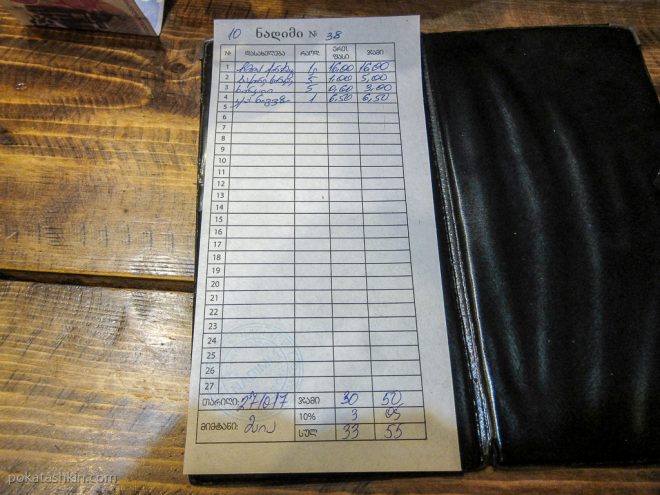 10 ნადიმი № 38
№ დასახელება რაოდ. ერთ. ფასი ჯამი
1 1 16.00 16.00
2 5 1.00 5.00
3 5 0.60 3.00
4 1 6.50 6.50
5
6
7
8
9
10
11
12
13
14
15
16
17
18
19
20
21
22
23
24
25
26
27
თარიღი: ჯამი 30 50
მიმტანი: მაია 10% 3 05
სულ 33 55
pokatashkin.com